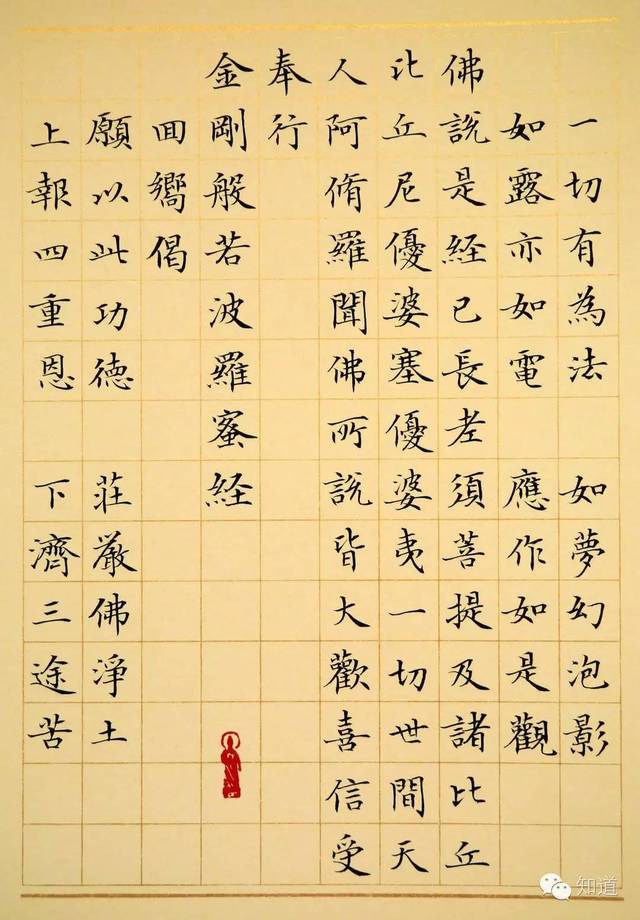 一切有為法 如夢幻泡影
如露亦如電 應作如是觀
佛說是経已長老須菩提及諸比丘
比丘尼優婆塞優婆夷一切世間天
人阿脩羅聞佛所說皆大歡喜信受
奉行
金剛般若波羅蜜経
囬嚮偈
願以此功徳 莊厳佛淨土
上報四重恩 下濟三途苦
知道